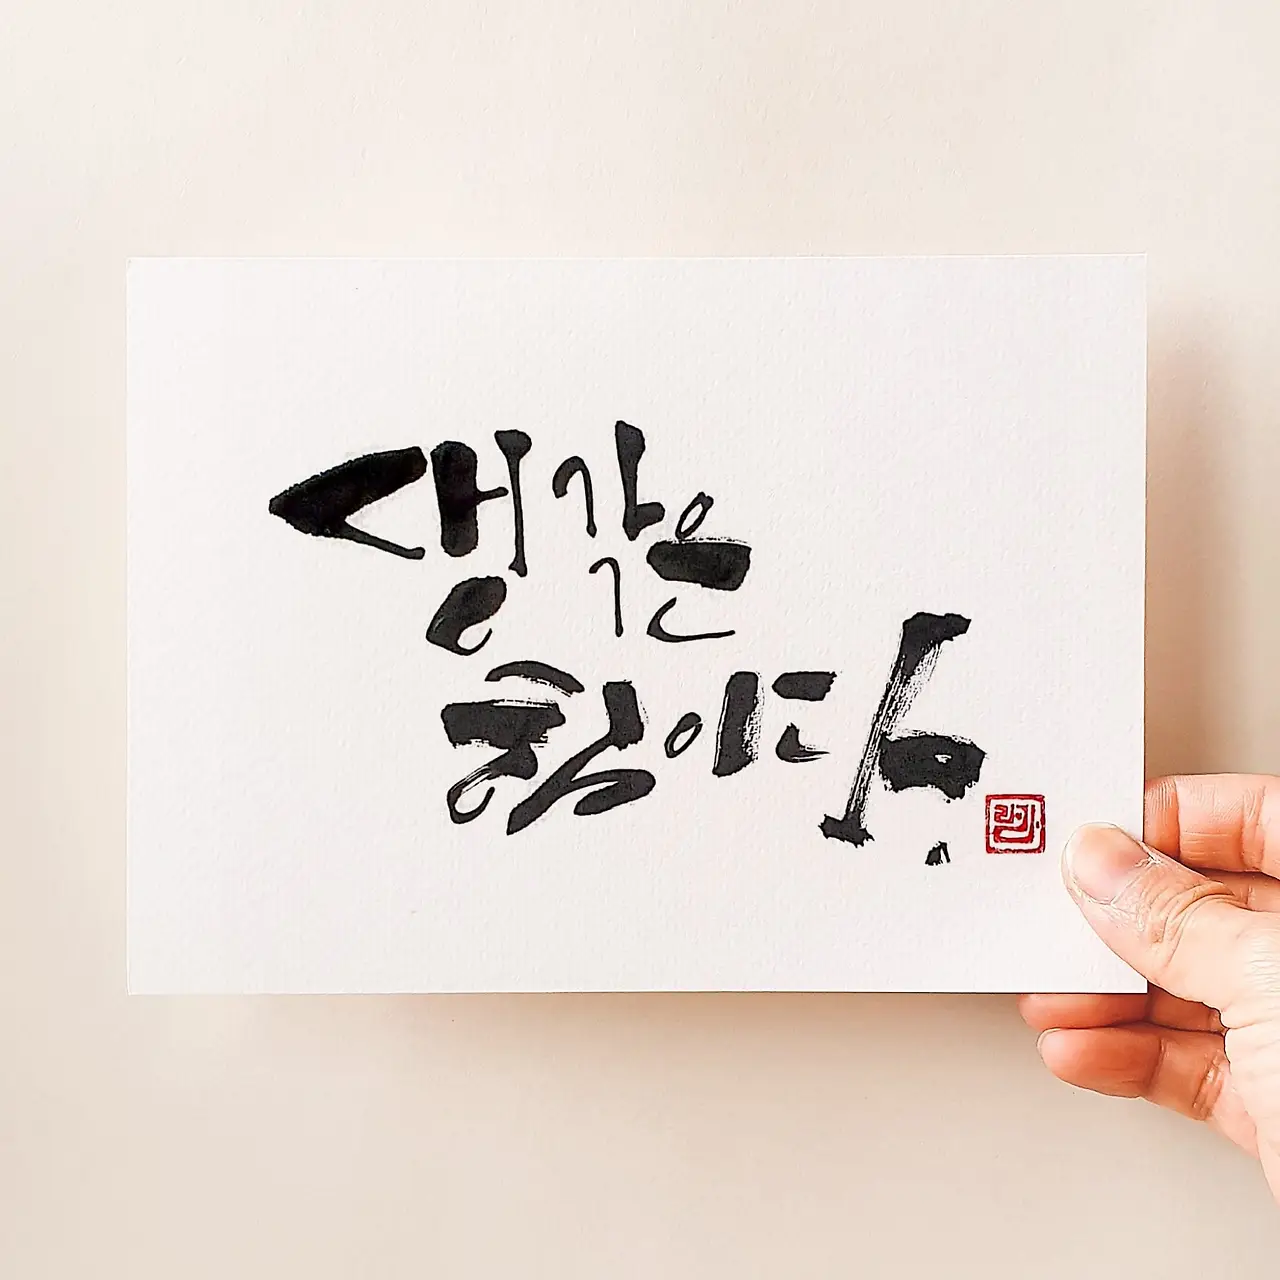 생각은
힘이다.